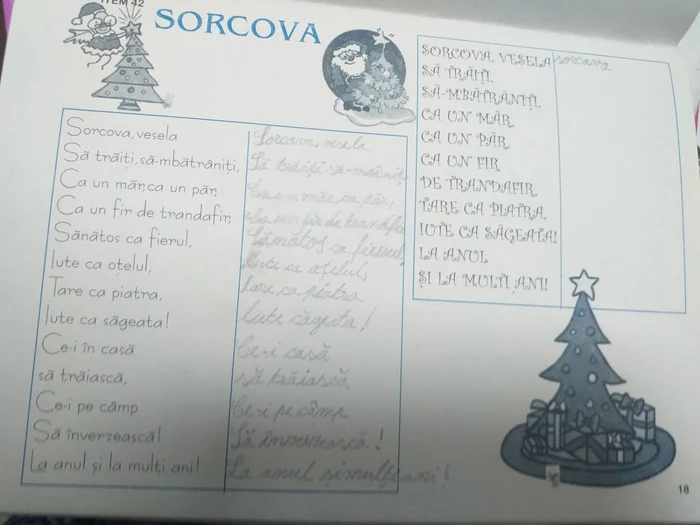 ITEM 42
SORCOVA
Sorcova, vesela
Să trăiți, să-mbătrâniți,
Ca un măr, ca un păr,
Ca un fir de trandafir,
Sănătos ca fierul,
Iute ca oțelul,
Tare ca piatra,
Iute ca săgeata!
Ce-i în casă
să trăiască,
Ce-i pe câmp
Să înverzească!
La anul și la mulți ani!
Sorcova, vesela
Să trăiți să-mbăniț
Ca un măr, ca păr,
Ca un fir de trandafir
Sănătos ca fierul,
Iute ca oțelul,
Tare ca piatra
Iute căgeata!
Ce-i casă
să trăiască
Ce-i pe câmp
Să înverzească!
La anul și mulți ani!
SORCOVA, VESELA
SĂ TRĂIȚI,
SĂ-MBĂTRÂNIȚI,
CA UN MĂR,
CA UN PĂR,
CA UN FIR
DE TRANDAFIR,
TARE CA PIATRA,
IUTE CA SĂGEATA!
LA ANUL
ȘI LA MULȚI ANI!
sorcova
18